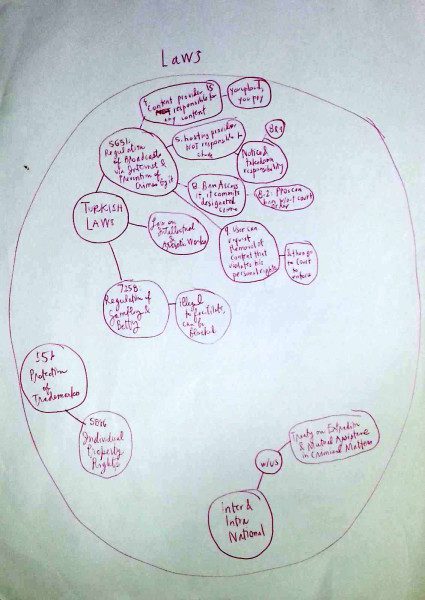 Laws
Content provider is
responsible for
any content
you upload,
you pay
5651:
Regulation
of Broadcasts
via Internet &
Prevention of
Crimes
5. hosting provider
not responsible to
Notice &
takedown
responsibility
8. Ban Access
if it commits
designated
crime
TURKISH
LAWS
Law on
Intellectual
& Artistic Works
9. User can
request
removal of
content that
violates his
personal rights
to
7258
Regulation of
&
Betting
illegal
to facilitate,
can be
blocked
551
Protection
of
Trademarks
Individual
Property
Rights
w/US
Treaty on Extradition
& Mutual Assistance
in Criminal Matters
Inter &
Intra
National